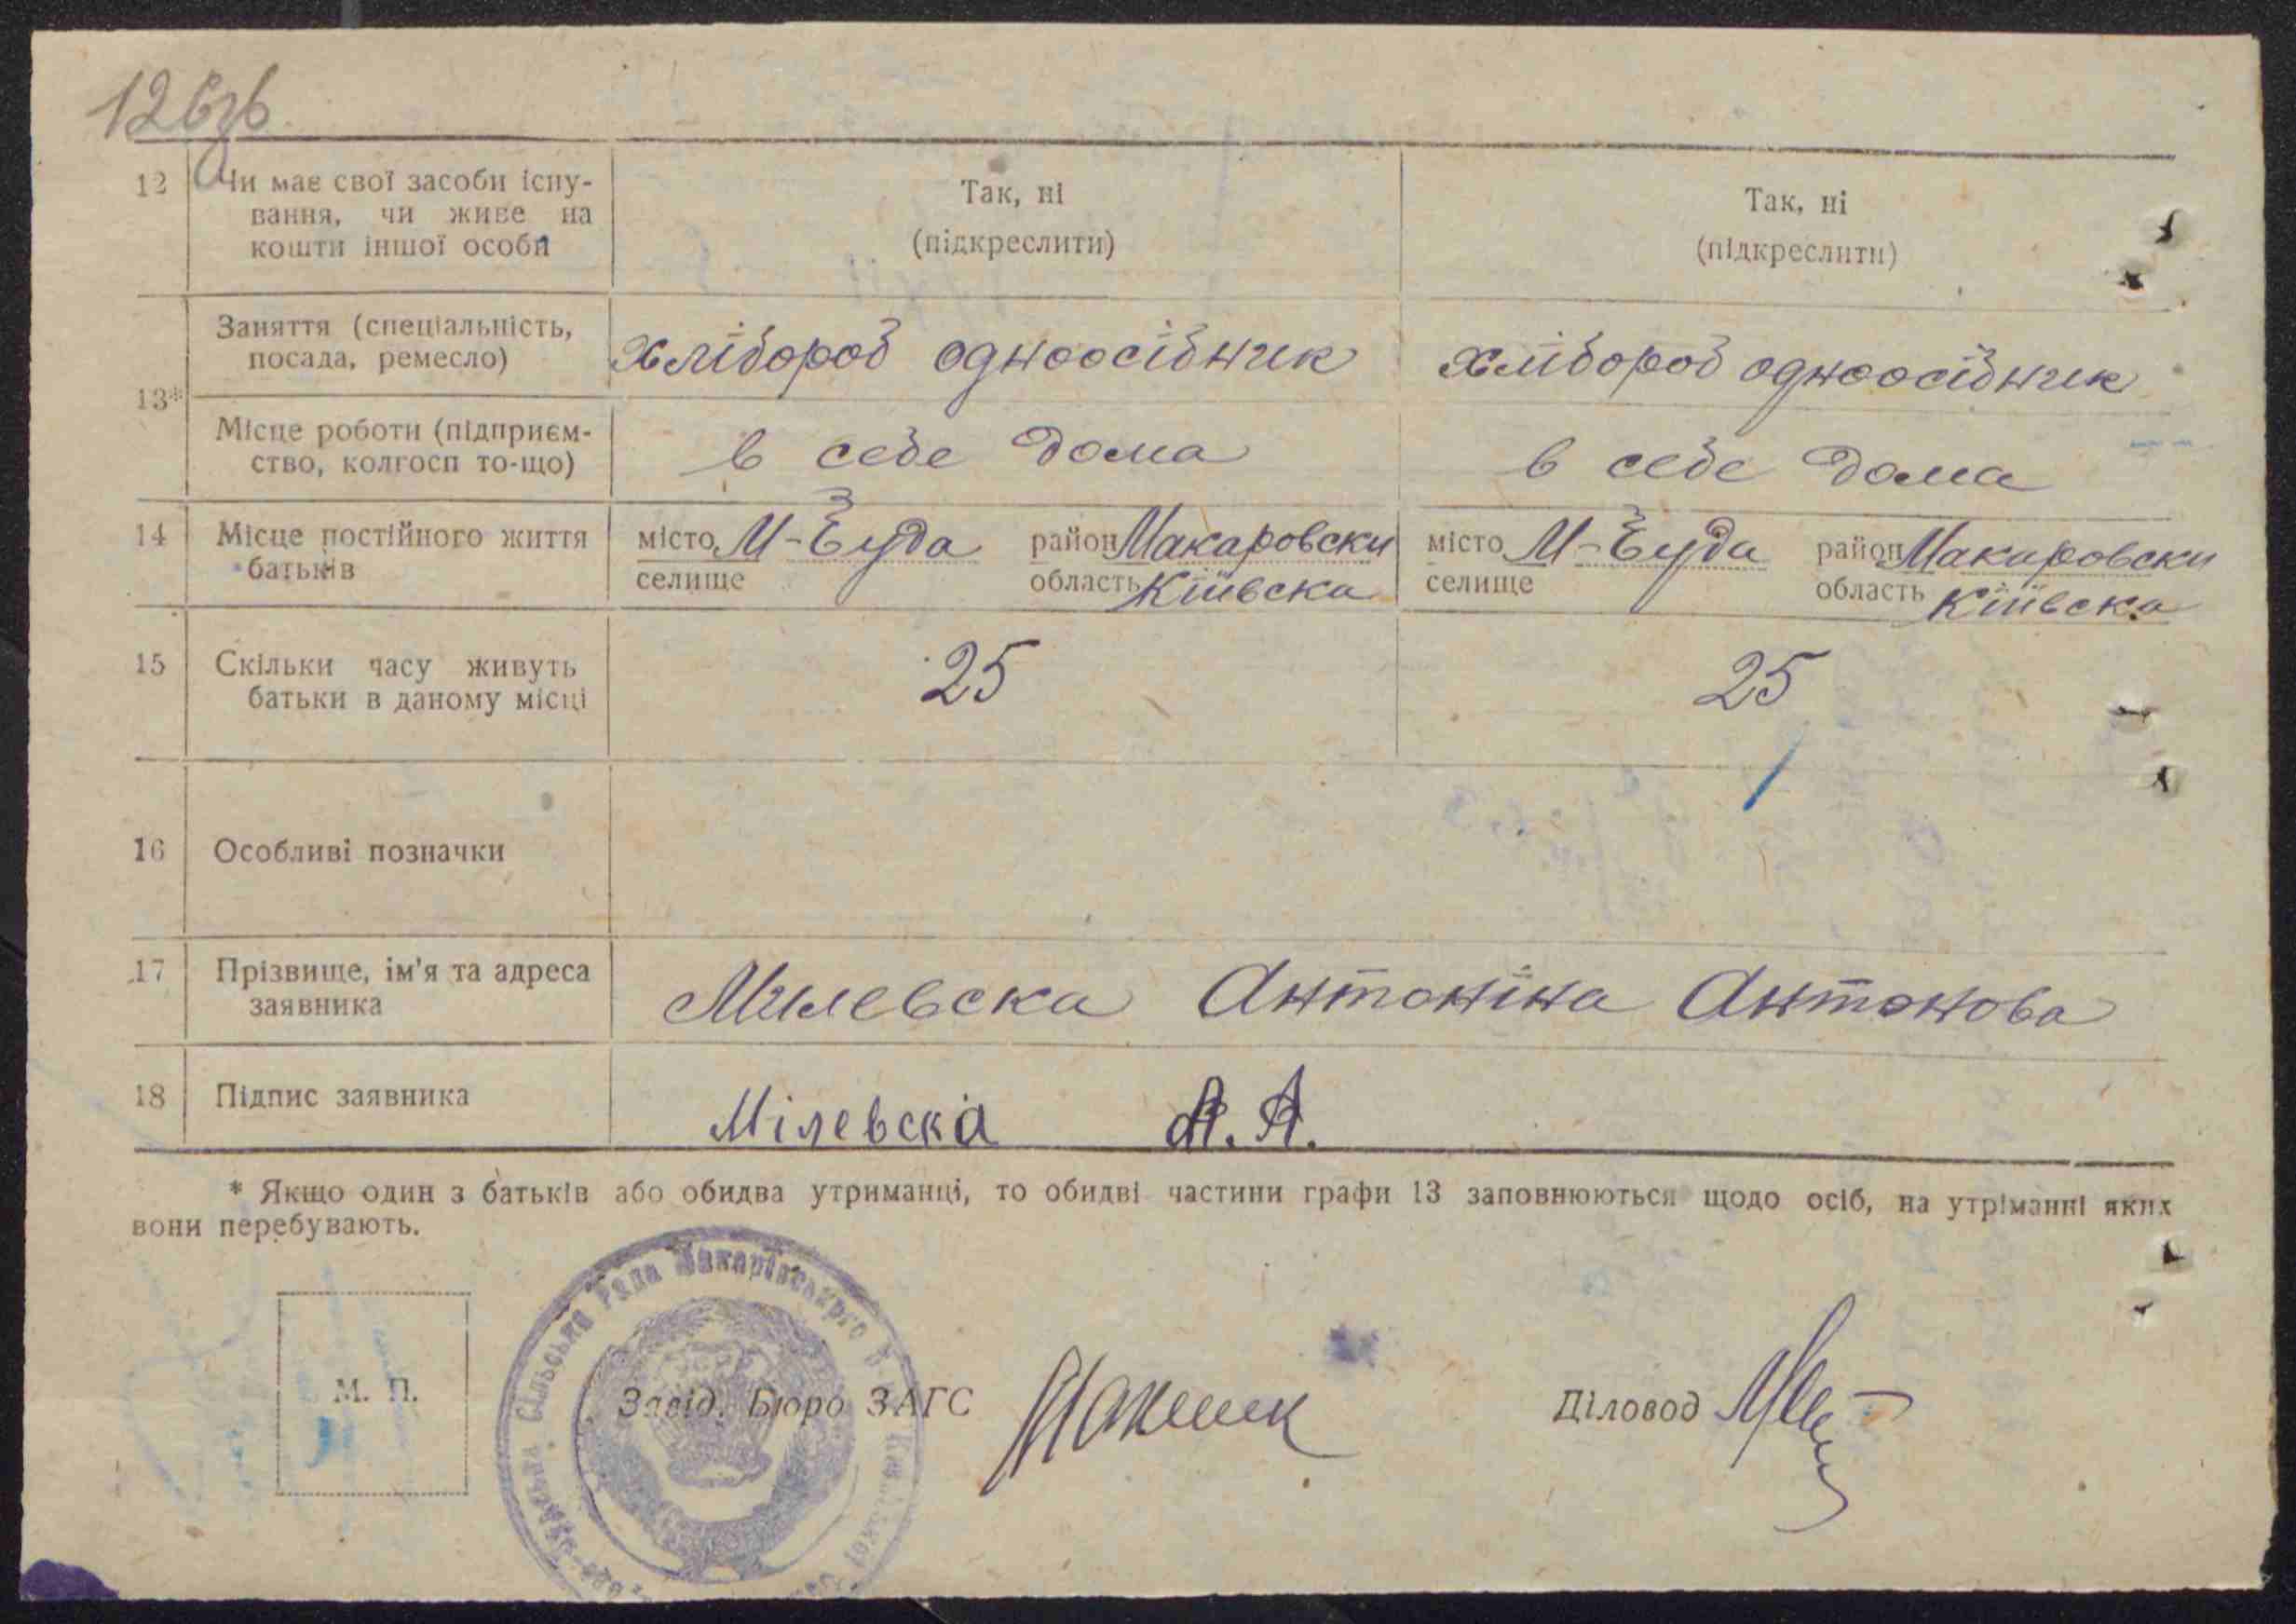 126зв
12 Чи має свої засоби існу- Так, ні Так, ні
вання, чи живе на (підкреслити) (підкреслити)
кошти іншої особи
13* Заняття (спеціальність, хлібороб одноосібник хлібороб одноосібник
посада, ремесло)
Місце роботи (підприєм- в себе дома в себе дома
ство, колгосп то-що)
14 Місце постійного життя місто М-Буда район Макаровски місто М-Буда район Макаровски
батьків селище область Київска селище область Київска
15 Скільки часу живуть 25 25
батьки в даному місці
16 Особливі позначки
17 Прізвище, ім'я та адреса Милевска Антоніна Антонова
заявника
18 Підпис заявника Мілевска А. А.
* Якщо один з батьків або обидва утриманці, то обидві частини графи 13 заповнюються щодо осіб, на утріманні яких
вони перебувають.
Сільська Рада Макарівського
М. П. Завід. Бюро ЗАГС Діловод